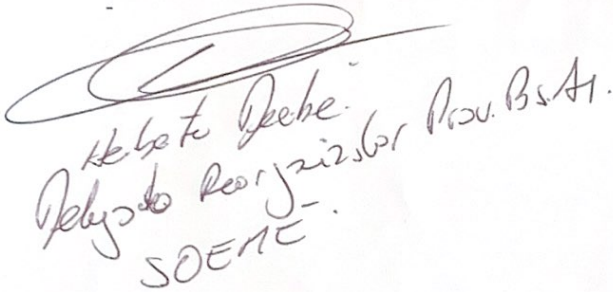 Heberto Deebe.
Delegado Reorganizador Prov. Bs. As.
SOEME.